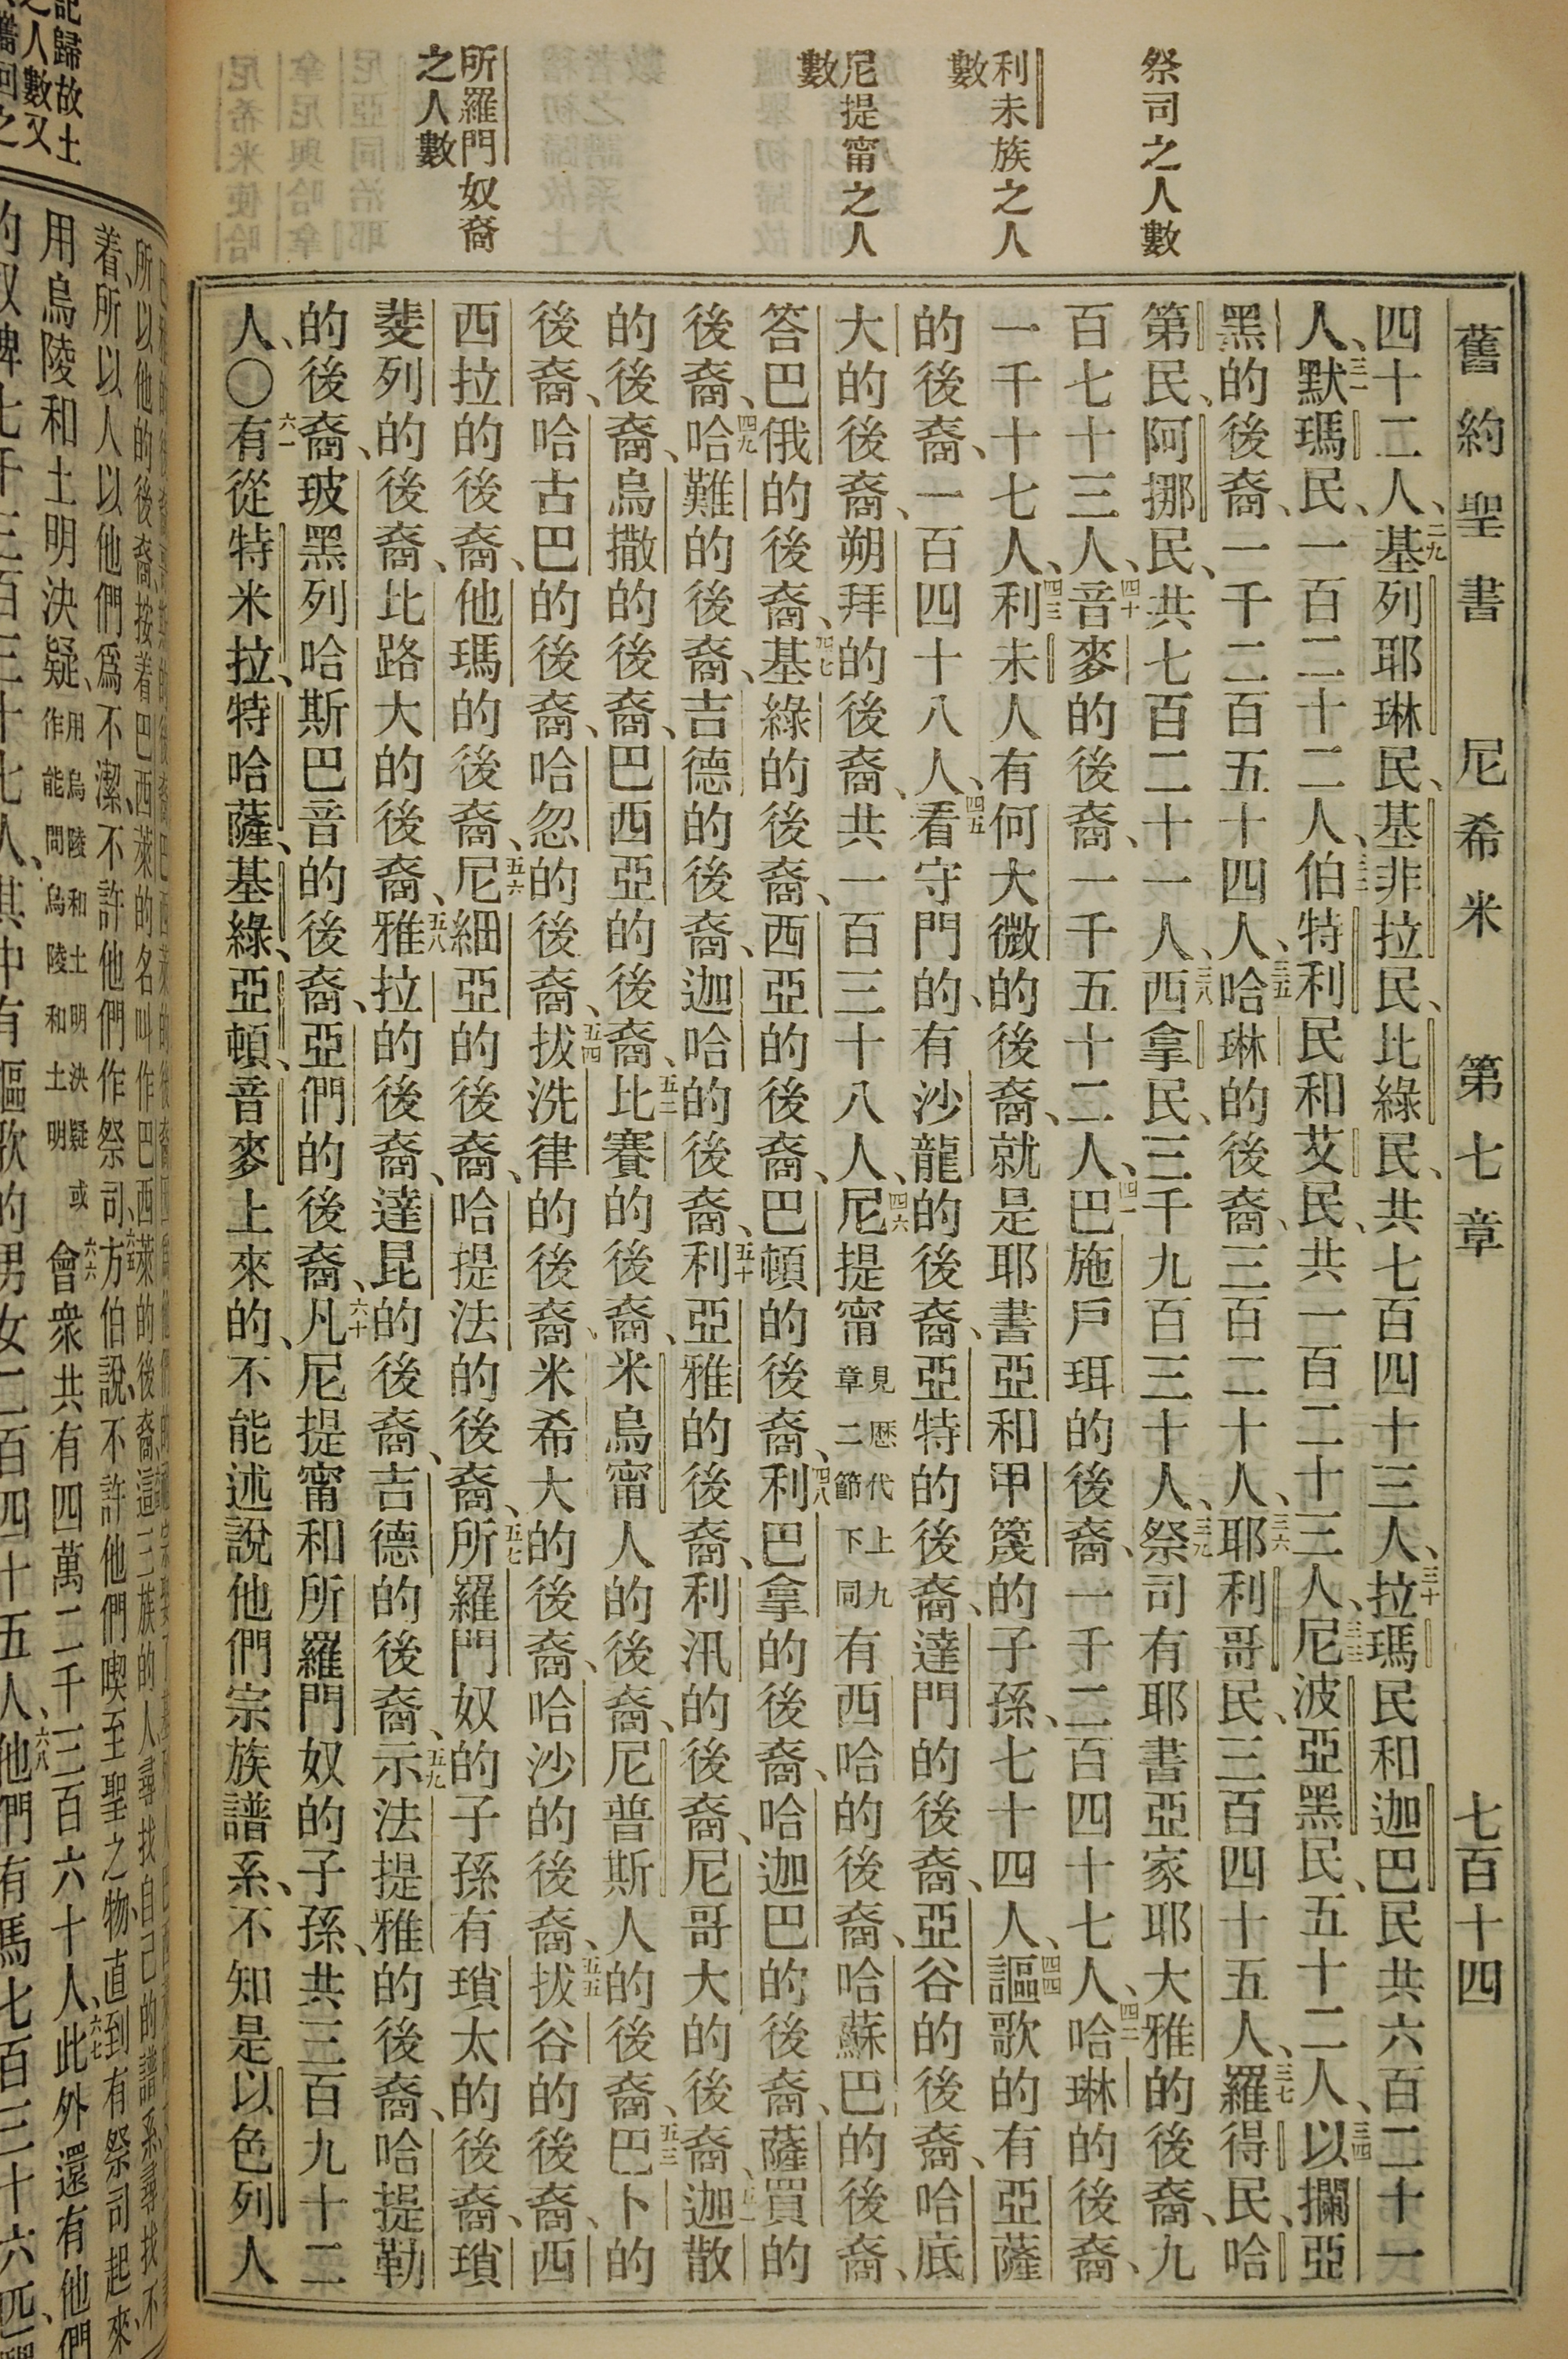 舊約聖書 尼希米 第七章 七百十四
祭司之人數
利未族之人
數
尼提甯之人
數
所羅門奴裔
之人數
四十二人、二九基列耶琳民、基非拉民、比綠民、共七百四十三人、三十拉瑪民和迦巴民共六百二十一
人、三一默瑪民、一百二十二人、三二伯特利民和艾民、共一百二十三人、三三尼波亞黑民、五十二人、三四以攔亞
黑的後裔、一千二百五十四人、三五哈琳的後裔、三百二十人、三六耶利哥民、三百四十五人、三七羅得民、哈
第民、阿挪民、共七百二十一人、三八西拿民、三千九百三十人、三九祭司有耶書亞家耶大雅的後裔、九
百七十三人、四十音麥的後裔、一千五十二人、四一巴施戶珥的後裔、一千二百四十七人、四二哈琳的後裔、
一千十七人、四三利未人有何大微的後裔、就是耶書亞和甲篾的子孫、七十四人、四四謳歌的有亞薩
的後裔、一百四十八人、四五看守門的、有沙龍的後裔、亞特的後裔、達門的後裔、亞谷的後裔、哈底
大的後裔、朔拜的後裔、共一百三十八人、四六尼提甯見歷代上九章二節下同有西哈的後裔、哈蘇巴的後裔、
答巴俄的後裔、四七基綠的後裔、西亞的後裔、巴頓的後裔、四八利巴拿的後裔、哈迦巴的後裔、薩買的
後裔、四九哈難的後裔、吉德的後裔、迦哈的後裔、五十利亞雅的後裔、利汛的後裔、尼哥大的後裔、迦散
的後裔、烏撒的後裔、巴西亞的後裔、五二比賽的後裔、米烏甯人的後裔、尼普斯人的後裔、五三巴卜的
後裔、哈古巴的後裔、哈忽的後裔、五四拔洗律的後裔、米希大的後裔、哈沙的後裔、五五拔谷的後裔、西
西拉的後裔、他瑪的後裔、五六尼細亞的後裔、哈提法的後裔、五七所羅門奴的子孫有瑣太的後裔、瑣
斐列的後裔、比路大的後裔、五八雅拉的後裔、達昆的後裔、吉德的後裔、五九示法提雅的後裔、哈提勒
的後裔、玻黑列哈斯巴音的後裔、亞們的後裔、六十凡尼提甯和所羅門奴的子孫、共三百九十二
人、○六一有從特米拉、特哈薩、基綠、亞頓、音麥上來的、不能述說他們宗族譜系、不知是以色列人
所以他的後裔、按着巴西萊的名叫作巴西萊的後裔、這三族的人、尋找自己的譜系、尋找不
着、所以人以他們爲不潔、不許他們作祭司、六五方伯說、不許他們喫至聖之物、直到有祭司起來、
用烏陵和土明決疑、用烏陵和土明決疑或作能問烏陵和土明六六會衆共有四萬二千三百六十人、六七此外還有他們
的奴婢七千三百三十七人、其中有謳歌的男女二百四十五人、六八他們有馬七百三十六匹、
記歸故土
之人數又